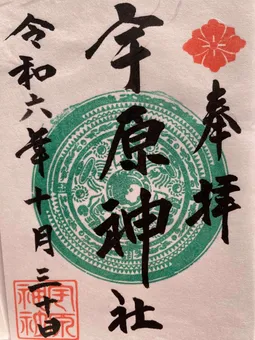 奉拝
宇原神社
令和六年十月三十日
宇原神社